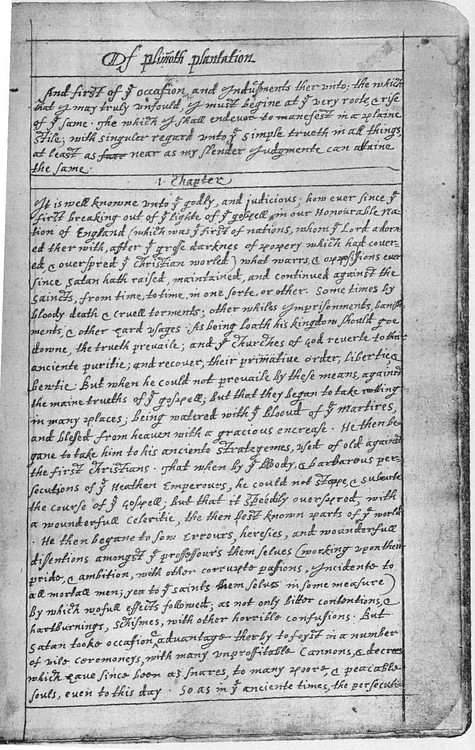 Of plimoth plantation
And first of yͤ occasion, and Indusments ther unto; the which
that I may truly unfould, I must begine at yͤ very roote, & rise
of yͤ same. The which I shall endevor to manefest in a plaine
stile; with singuler regard unto yͤ simple trueth in all things,
at least as near as my slender Judgmente can attaine
the same.
1. Chapter
It is well knowne unto yͤ godly, and judicious; how ever since yͤ
first breaking out of yͤ lighte of yͤ gospell, in our Honourable Na-
tion of England (which was yͤ first of nations, whom yͤ Lord adorn-
ed ther with, after yͤ grose darknes of popery which had cover-
ed, & overspred yͤ christian worled) what warrs, & oppossitions ever
since Satan hath raised, maintained, and continued against the
Saincts, from time, to time, in one sorte, or other. Some times by
bloody death & cruell torments; other whiles Imprisonments, banish-
ments, & other hard usages. As being loath his kingdom should goe
downe, the trueth prevaile; and yͤ Churches of god reverte to their
anciente puritie; and recover, their primative order, libertie, &
bewtie. But when he could not prevaile by these means, against
the maine trueths of yͤ gospell; but that they began to take rotting
in many places; being watered with yͤ bloud of yͤ martires,
and blesed from heaven with a gracious encrease. He then be-
gane to take him to his anciente strategemes, used of old against
the first christians. That when by yͤ bloody, & barbarous per-
secutions of yͤ Heathen Emperours, he could not stoppe, & subuerte
the course of yͤ Gospell; but that it speedily overspred, with
a wounderfull celeritie, the then best known parts of yͤ world.
He then begane to sow Errours, heresies, and wounderfull
dissentions amongst yͤ proffessours them selves (working upon their
pride, & ambition, with other corrupte passions, Incidente to
all mortall men; yea to yͤ saints them selves in some measure)
by which wofull effects followed; as not only bitter contentions, &
hartburnings, schismes, with other horrible confusions. But
Satan tooke occasion & advantage therby to foyst in a number
of vile ceremoneys, with many unproffitable Cannons, & decrees
which have since been as snares, to many poore, & peacable
souls, even to this day. So as in yͤ anciente times, the persecuti-